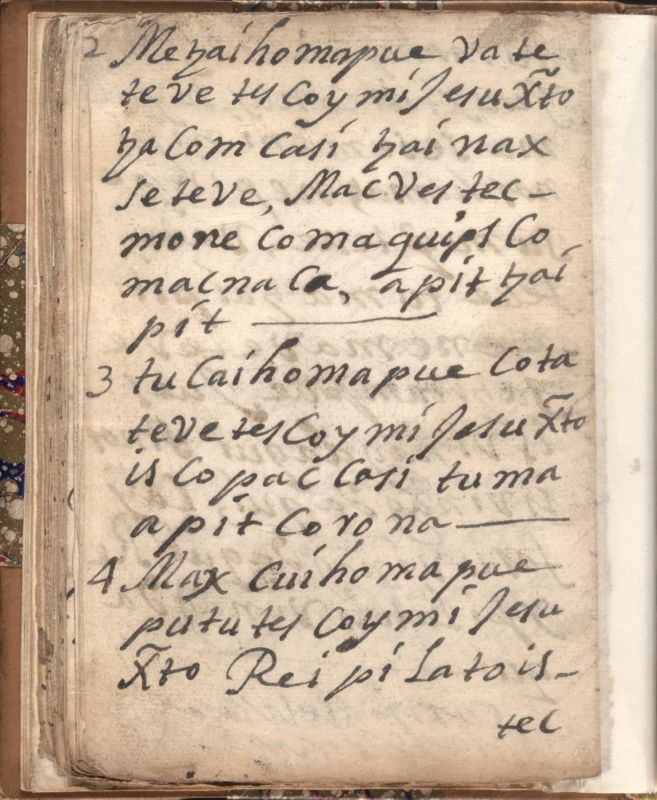 2 Metzaihomapue va te
teve tes Coy mi Jesu X̃to
tza Com Casi tzai nax
seteve, Mac Ves tec-
mone Comaquips Co
macnaca, apit tzai
pit
3 tuCaihomapue Cota
teve tes Coy mi Jesu X̃to
is Co pac Casi tuma
apit Corona
4 Max Cuihomapue
pututes Coy mi Jesu
X̃to Rei pi Lato is-
tec